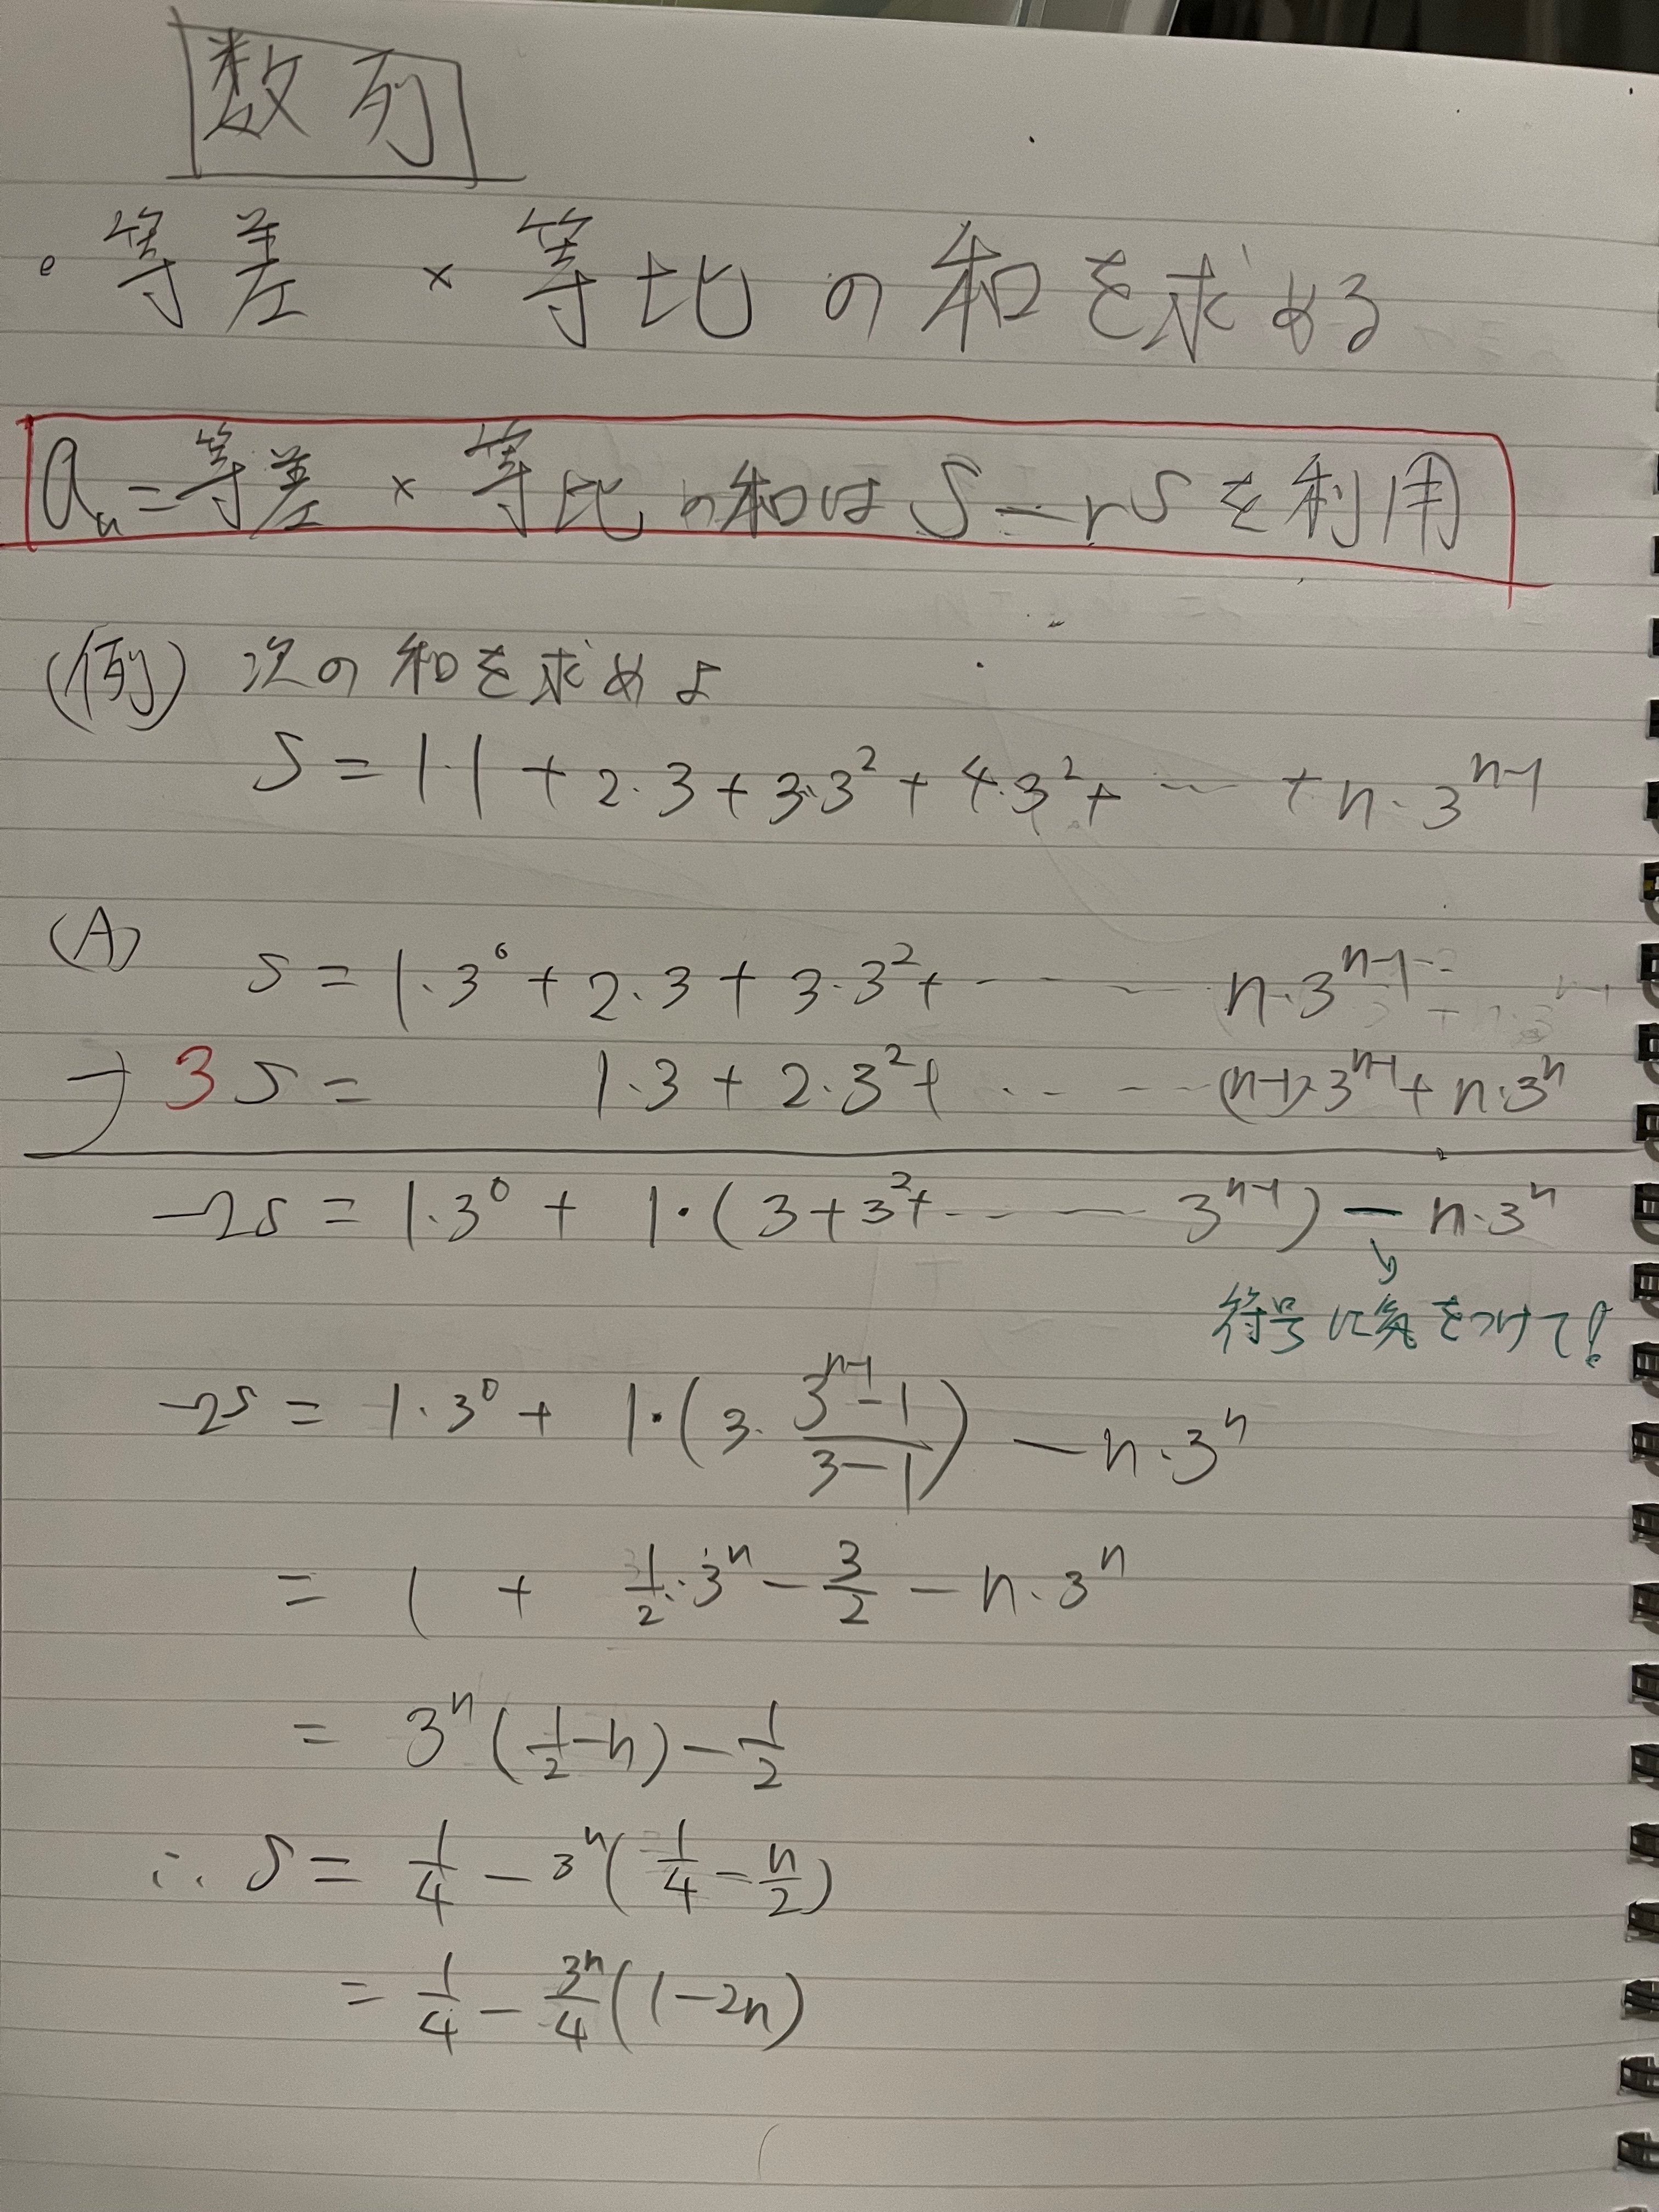 数列
・等差 × 等比 の和を求める
aₙ=等差 × 等比 の和は S-rS を利用
(例) 次の和を求めよ
S = 1・1 + 2・3 + 3・3² + 4・3² + ⋯ + n・3ⁿ⁻¹
(A) S = 1・3⁰ + 2・3 + 3・3² + ⋯ n・3ⁿ⁻¹
-) 3S = 1・3 + 2・3² + ⋯ (n-1)・3ⁿ⁻¹ + n・3ⁿ
-2S = 1・3⁰ + 1・(3 + 3² + ⋯ 3ⁿ⁻¹) - n・3ⁿ
↓
符号に気をつけて!
-2S = 1・3⁰ + 1・(3・(3ⁿ⁻¹-1)/(3-1)) - n・3ⁿ
= 1 + 1/2・3ⁿ - 3/2 - n・3ⁿ
= 3ⁿ(1/2-n) - 1/2
∴ S = 1/4 - 3ⁿ(1/4 - n/2)
= 1/4 - 3ⁿ/4(1-2n)